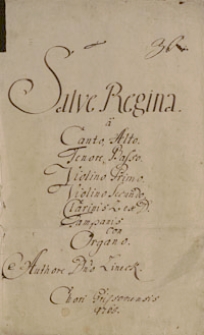 36
Salve Regina.
à
Canto, Alto.
Tenore, Basso.
Violino Primo.
Violino Secundo.
Clarinis 2 ex D.
Campanis
con
Organo.
Authore Dno Linek.
Chori